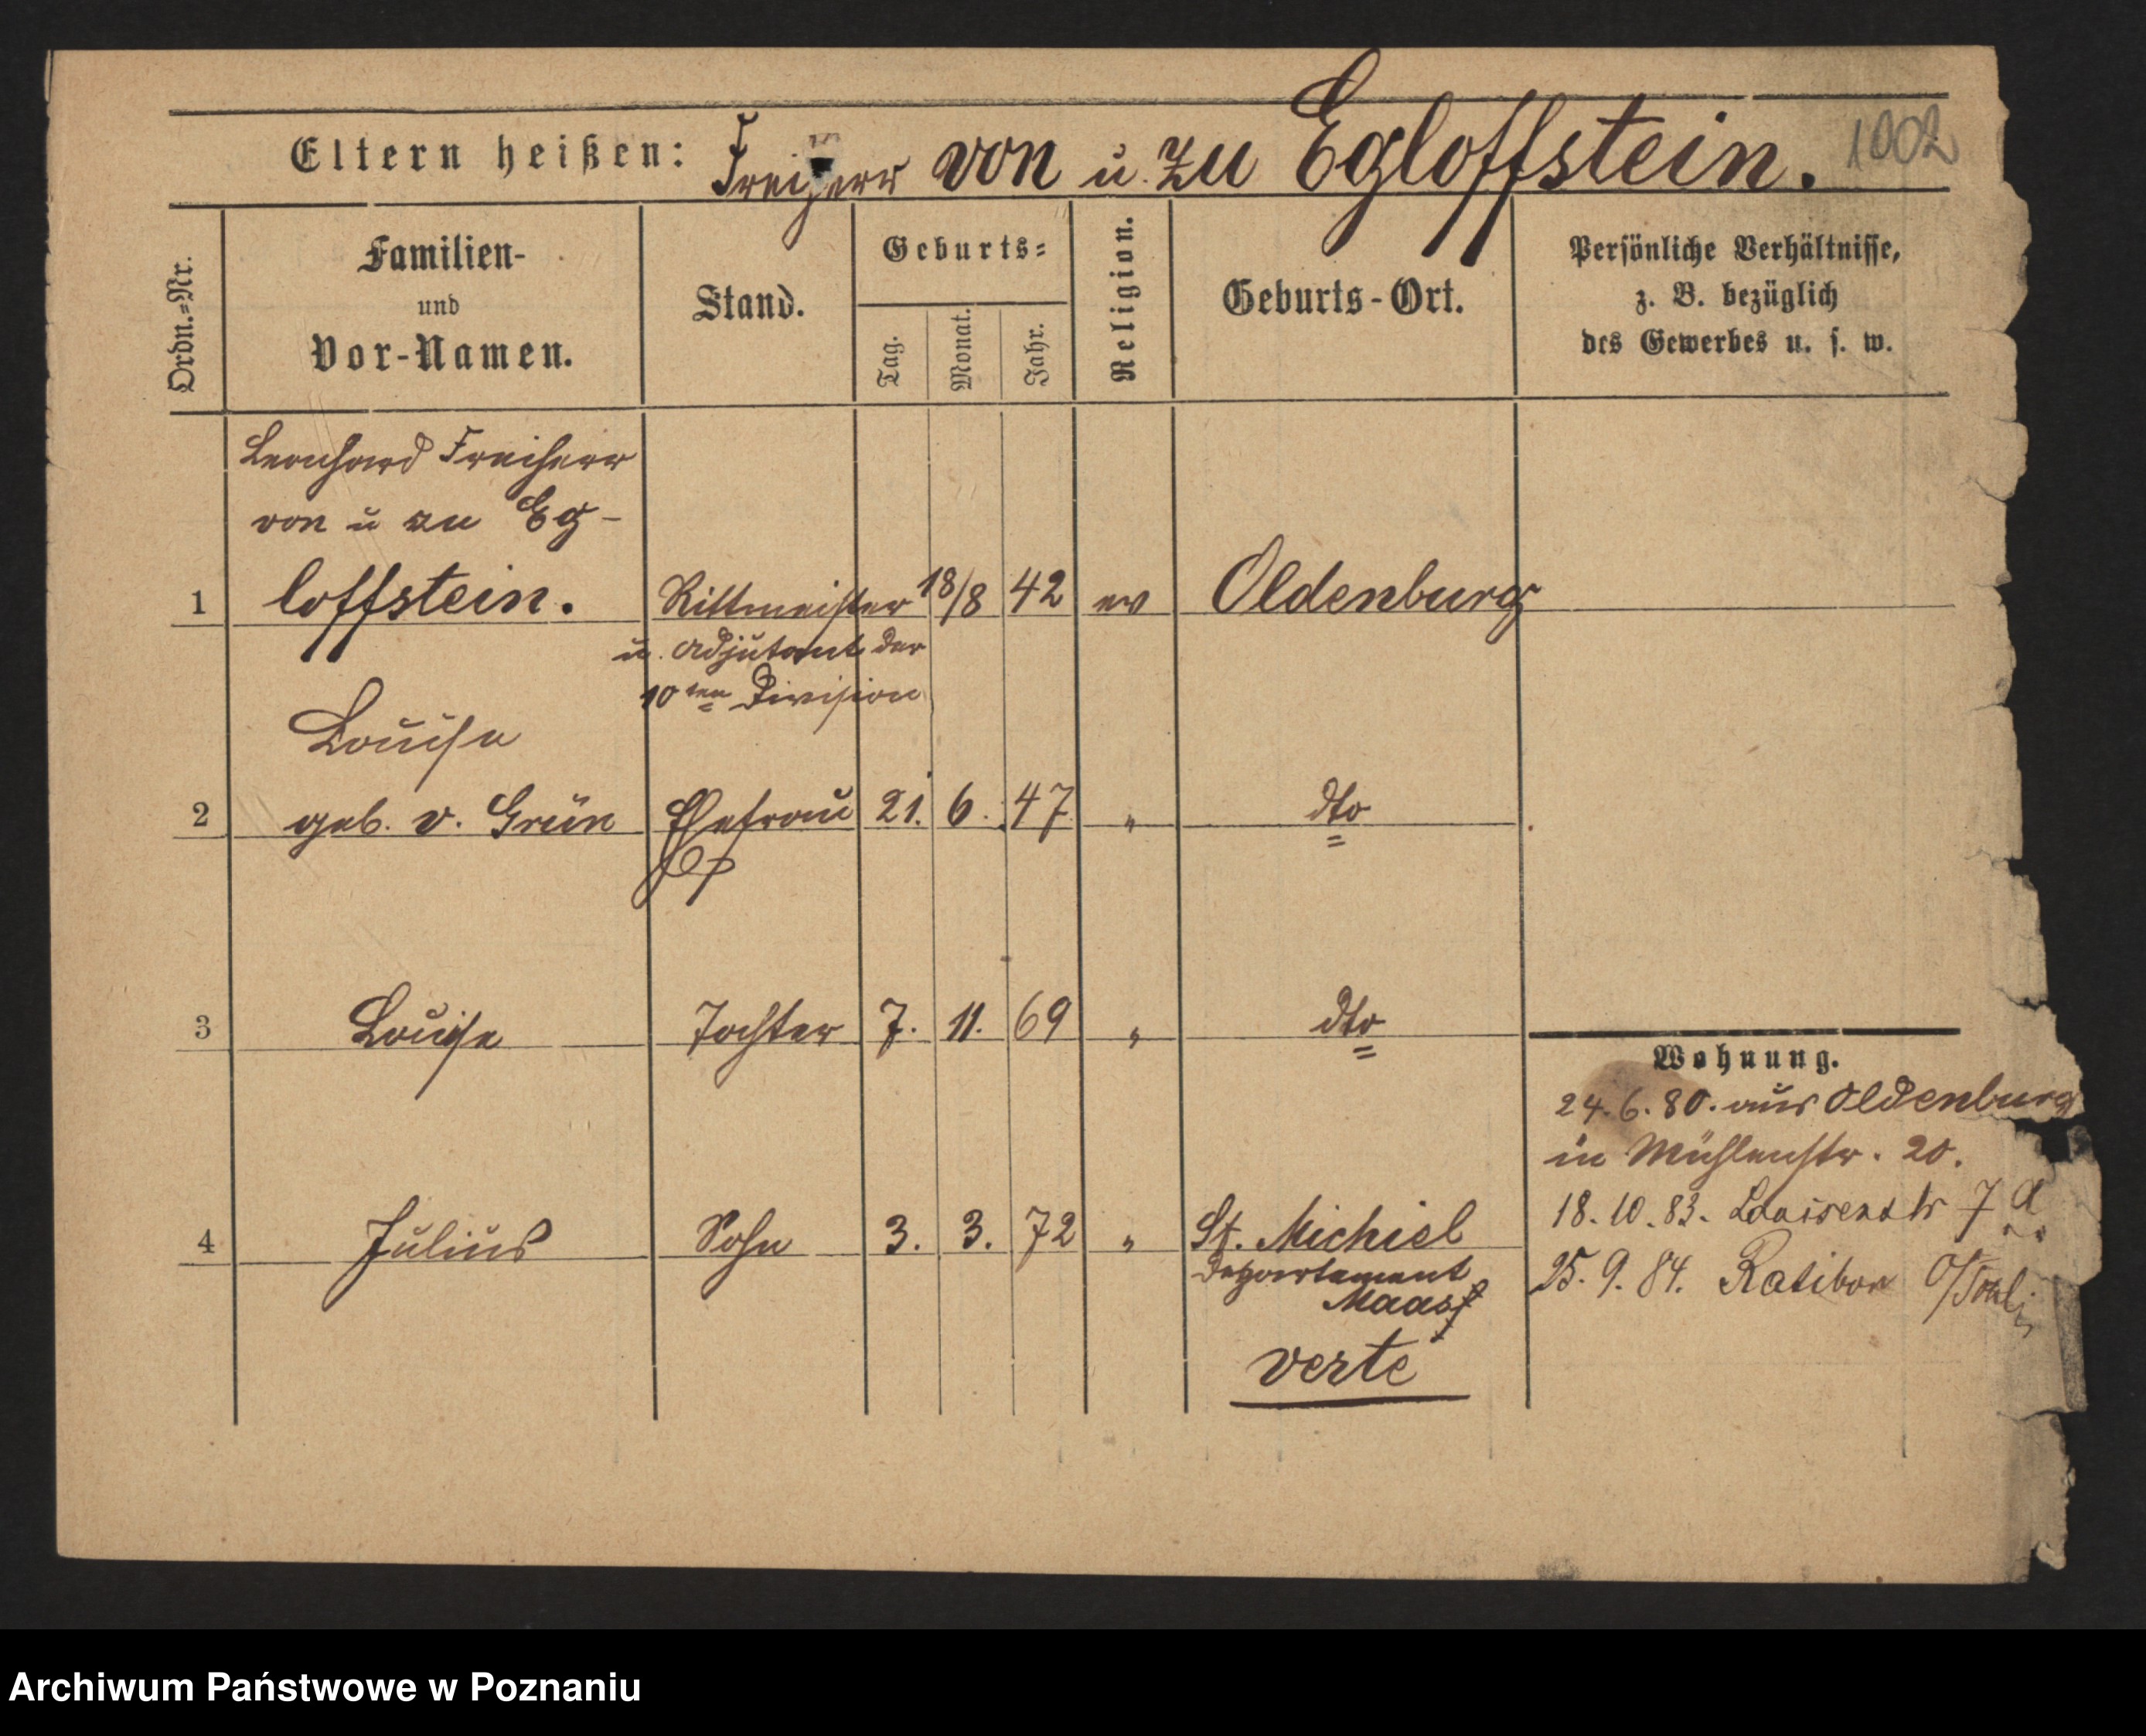 Eltern heißen: Freiherr von u. zu Egloffstein. 1002
Ordn.=Nr.
Familien-
und
Vor-Namen.
Stand.
Geburts=
Tag.
Monat.
Jahr.
Religion.
Geburts-Ort.
Persönliche Verhältnisse,
z. B. bezüglich
des Gewerbes u. s. w.
Leonhard Freiherr
von u zu Eg-
1 loffstein. Rittmeister 18/8 42 ev Oldenburg
u. Adjutant der
10ten Division
Louise
2 geb. v. Grün Ehefrau 21. 6. 47 " dto
3 Louise Tochter 7. 11. 69 " dto
4 Julius Sohn 3. 3. 72 " St. Michiel
Departement
Maas
verte
Wohnung.
24.6.80. aus Oldenburg
in Mühlenstr. 20.
18.10.83. Louisenstr 7
25.9.84. Ratibor
Archiwum Państwowe w Poznaniu